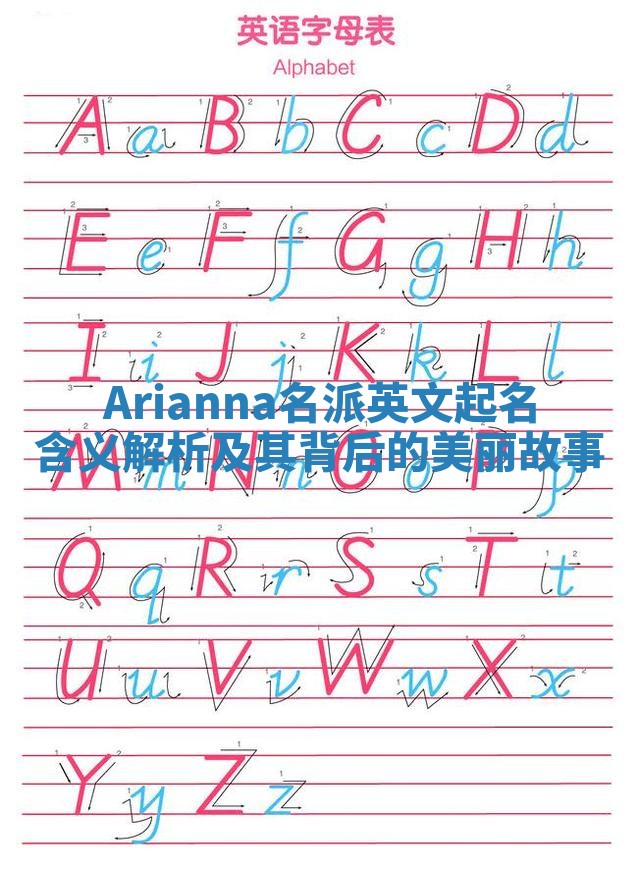 英语字母表
Alphabet
A a B b C c D d
E e F f G g H h
I i J j K k L l
Arianna名派英文起名
含义解析及其背后的美丽故事
M m N n O o P p
Q q R r S s T t
U u V v W w X x
Y y Z z